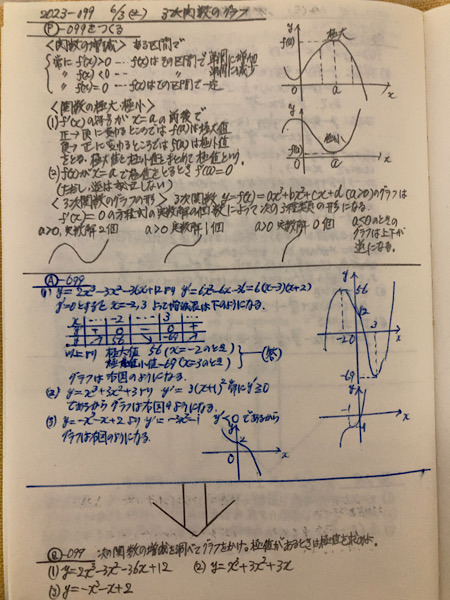 2023-099 6/3(土) 3次関数のグラフ
Ⓟ-099をつくる
<関数の増減> ある区間で
常に f'(x)>0 … f(x)はその区間で単調に増加
〃 f'(x)<0 … 〃 単調に減少
〃 f'(x)=0 … f(x)はその区間で一定
y
f(a)
極大
0
a
x
<関数の極大・極小>
(1) f'(x)の符号が x=a の前後で
正→負に変わるところでは f(a)は極大値
負→正に変わるところでは f(a)は極小値
をとる。極大値と極小値をまとめて極値という。
(2) f(x)が x=a で極値をとるとき f'(a)=0
(ただし、逆は成立しない)
y
f(a)
極小
0
a
x
<3次関数のグラフの形> 3次関数 y=f(x)=ax³+bx²+cx+d (a>0)のグラフは
f'(x)=0の方程式の実数解の個数によって次の3種類の形になる。
a>0, 実数解2個
a>0 実数解1個
a>0 実数解0個
a<0のときの
グラフは上下が
逆になる。
Ⓐ-099
(1) y=2x³-3x²-36x+12より y'=6x²-6x-36=6(x-3)(x+2)
y'=0とすると x=-2, 3 よって増減表は下のようになる。
x … -2 … 3 …
y' + 0 - 0 +
y ↗ 56 ↘ -69 ↗
以上より 極大値 56 (x=-2のとき)
極小値 -69 (x=3のとき)
(答)
グラフは右図のようになる。
y
56
12
3
-2
0
x
-69
(2) y=x³+3x²+3xより y'=3(x+1)² 常に y'≧0
であるからグラフは右図のようになる。
y
-1
-1
x
(3) y=-x³-x+2より y'=-3x²-1 y'<0であるから
グラフは右図のようになる。
y
2
0
x
Ⓠ-099 次の関数の増減を調べてグラフをかけ。極値があるときは極値を求めよ。
(1) y=2x³-3x²-36x+12 (2) y=x³+3x²+3x
(3) y=-x³-x+2